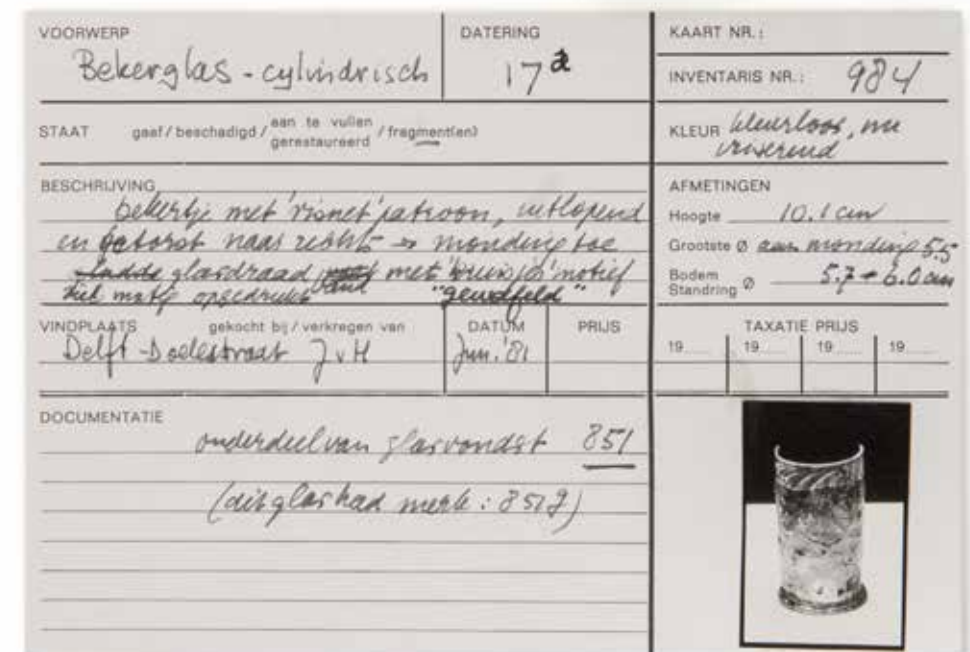 VOORWERP
Bekerglas - cylindrisch
DATERING
17 a
KAART NR.:
INVENTARIS NR.: 984
STAAT gaaf / beschadigd / aan te vullen gerestaureerd / fragment(en)
KLEUR kleurloos, nu
iriserend
BESCHRIJVING
bekertje met 'visnet' patroon, uitlopend
en getorst naar rechts monding toe
glasdraad met motief
opgedrukt "gewafeld"
AFMETINGEN
Hoogte 10.1 cm
Grootste Ø aan monding 5.5
Bodem Standring Ø 5.7 - 6.0 cm
VINDPLAATS gekocht bij / verkregen van
Delft - Doelestraat J v H
DATUM
Jun. '81
PRIJS
TAXATIE PRIJS
19...... 19...... 19...... 19......
DOCUMENTATIE
onderdeel van glasvondst 851
(dit glas had merk: 851 g)